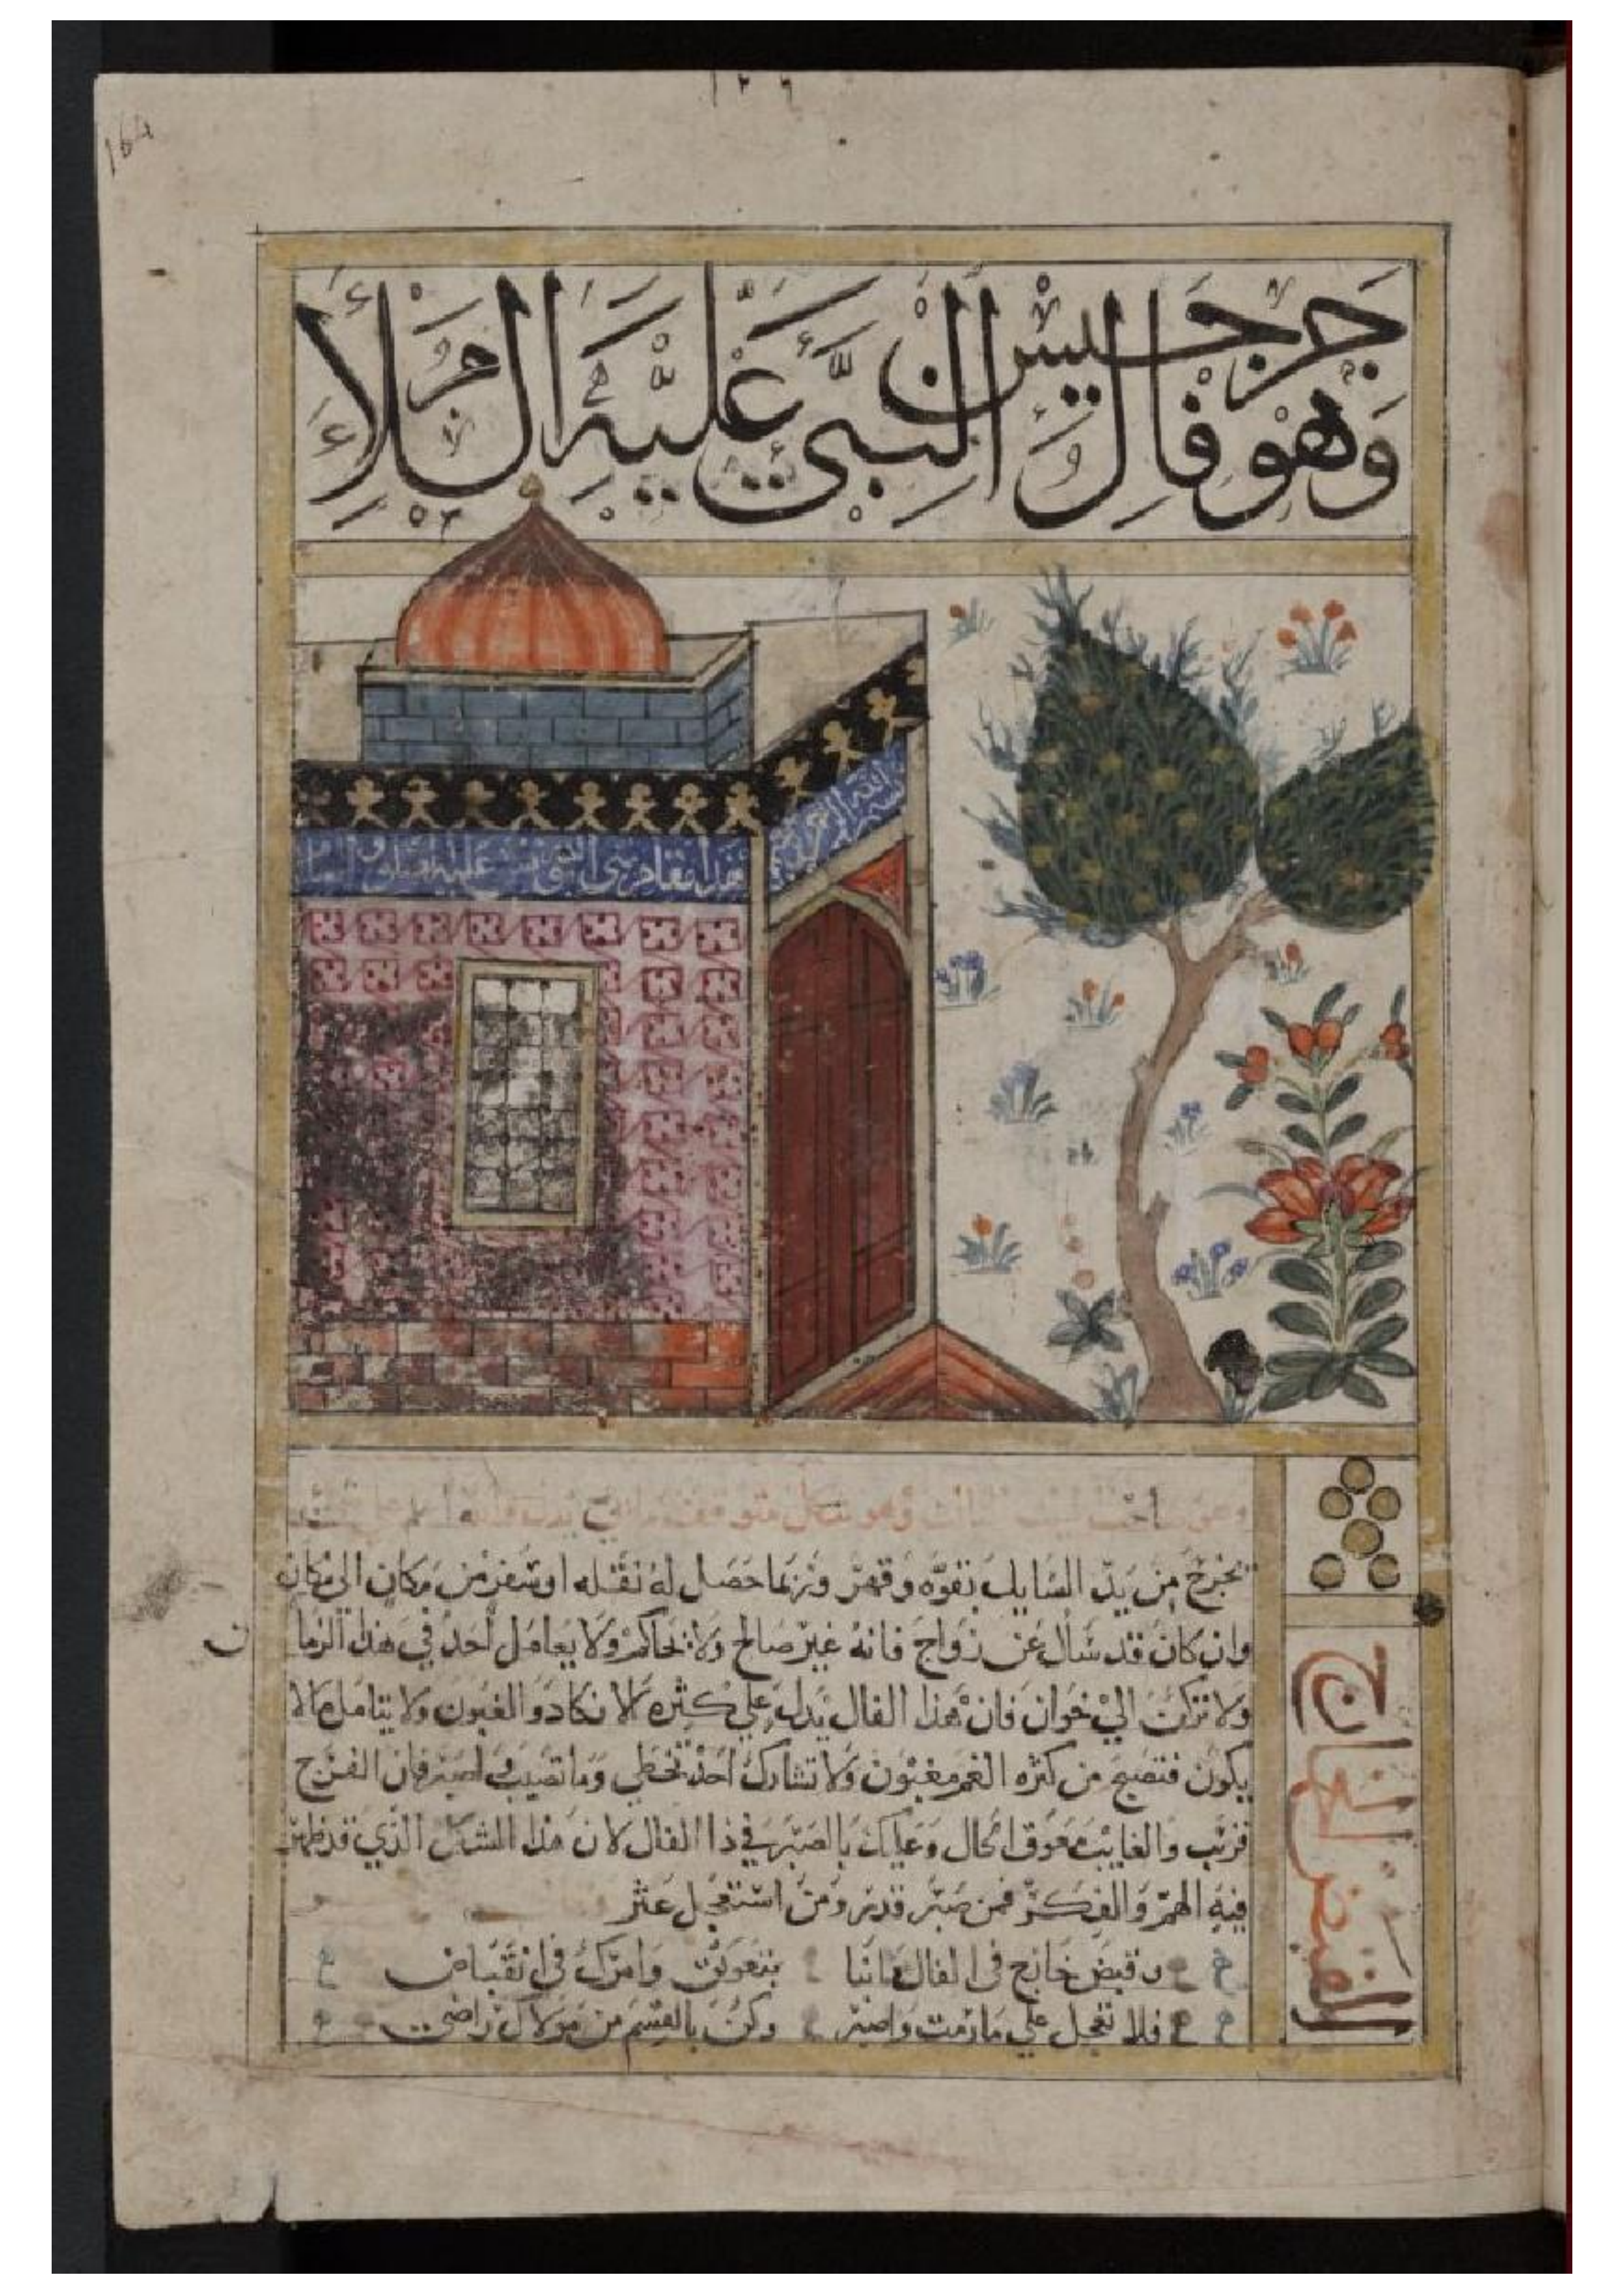 ١٢٦
164
جرجيس
وهو فال النبي عليه السلام
بسم الله الرحمن
هذا مقام النبي جرجيس عليه الصلوة والسلام
وهو متكل
يخرج من يد السايل بقوه وقهر وربما حصل له نقله او سفر من مكان الى مكان
وان كان قد سأل عن زواج فانه غير صالح ولا تحاكم ولا يعامل أحد في هذا الزمان
ولا تركن الي خوان فان هذا الفال يدل علي كثره الانكاد والغبون ولا يتامل مالا
يكون فتصبح من كثره الغم مغبون ولا تشارك أحد تخطي وما تصيب واصبر فان الفرج
قريب والغايب معوق الحال وعليك بالصبر في ذا الفال لان هذا الشكل الذي قد ظهر
فيه الهم والفكر فمن صبر قدر ومن استعجل عثر
وقبض خارج في الفال بتعويق وامرك في انقباض
فلا تعجل علي ما رمت واصبر وكن بالقسم من مولاك راضي
القبض الخارج